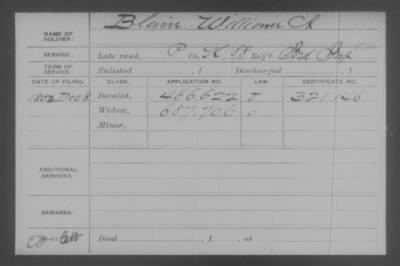 NAME OF SOLDIER: Blain William A
SERVICE: Late rank, P Co. K, Reg't Ind Inf
TERM OF SERVICE: Enlisted , 1 Discharged , 1
DATE OF FILING. CLASS. APPLICATION NO. LAW. CERTIFICATE NO.
Dec 8 Invalid, 466,622 321,146
Widow, 687,706
Minor,
ADDITIONAL SERVICES:
REMARKS:
Died , 1 , at